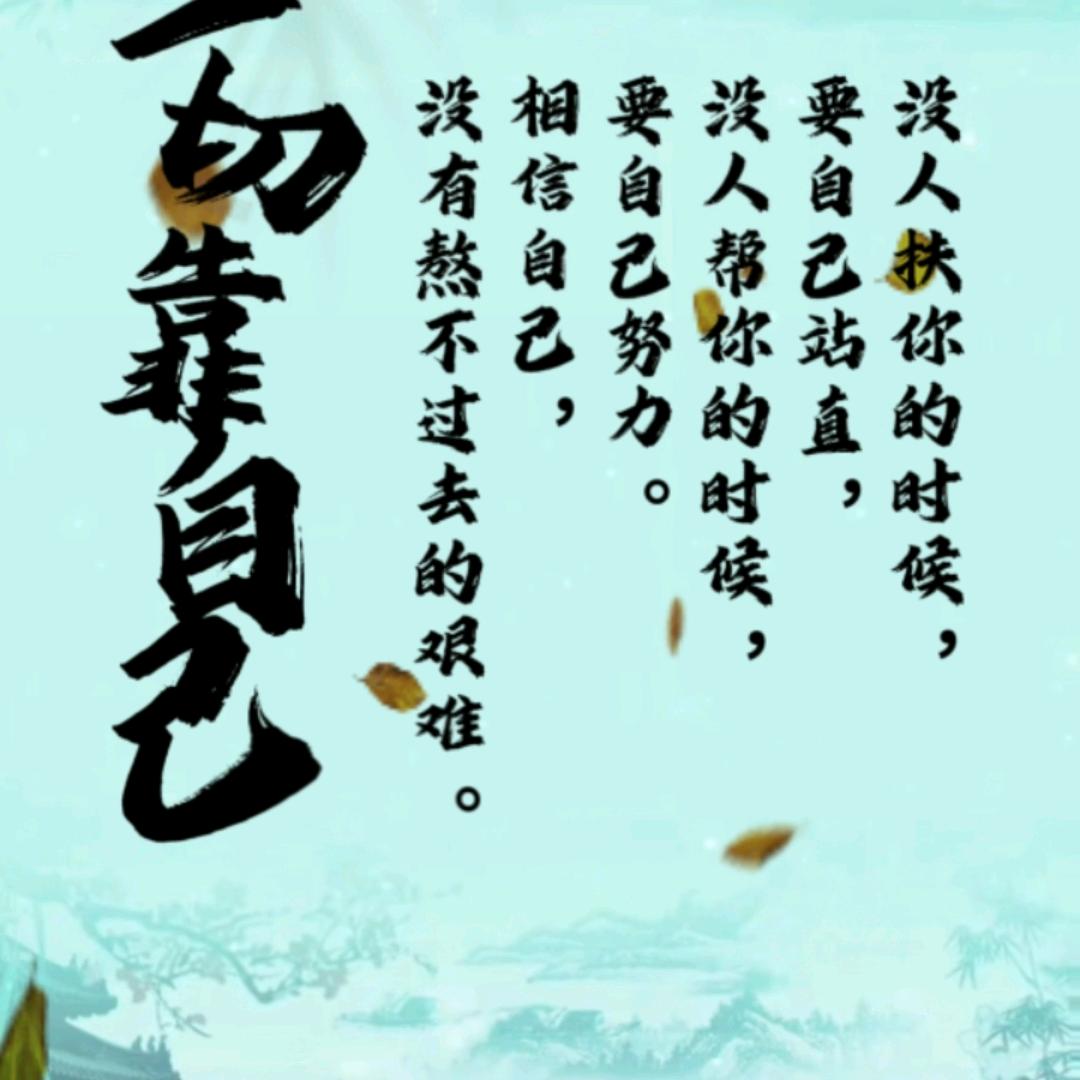 没人扶你的时候，
要自己站直，
没人帮你的时候，
要自己努力。
相信自己，
没有熬不过去的艰难。
一切靠自己